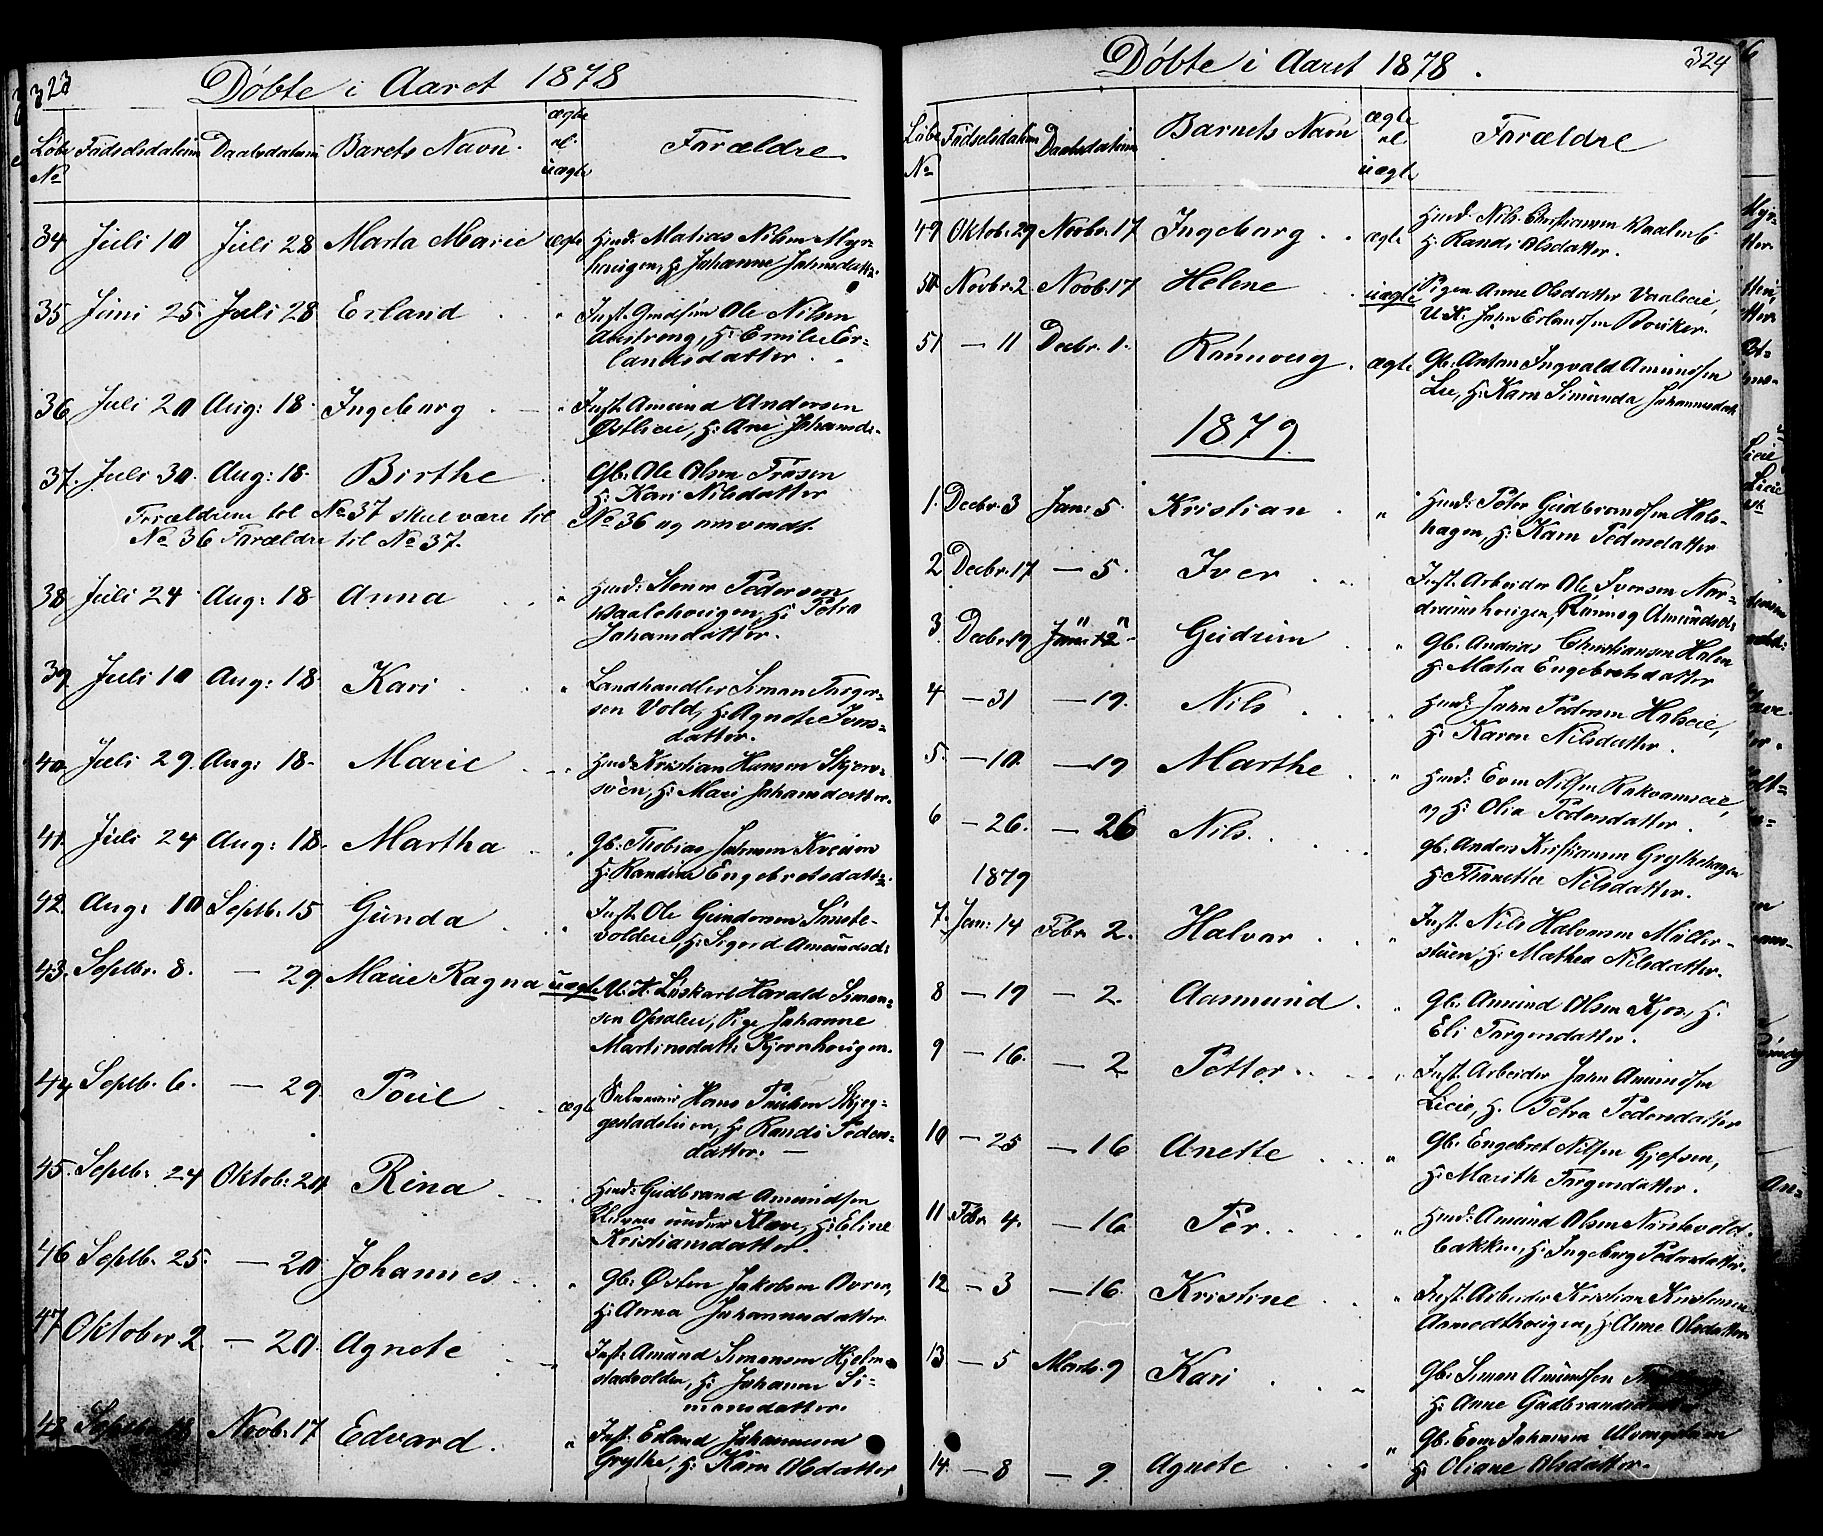 323
Døbte i Aaret 1878
Løbe No Fødselsdatum Daabsdatum Barets Navn. ægte el. uægte Forældre.
34 Juli 10 Juli 28 Marta Marie ægte Husmd: Matias Nilsen Myr-
haugen, H: Johanne Johnsdatter.
35 Juni 25 Juli 28 Erland " Inst. Ole Nilsen
Austreng, H: Emilie Er-
landsdatter.
36 Juli 20 Aug: 18 Ingeborg " Inst: Amund Andersen
Østlien, H: Ane Johansdr.
37. Juli 30. Aug: 18 Birthe Gb: Ole Olsen Frøsen
H: Kari Nilsdatter
Forældrene til No 37 skul være til No 36 og omvendt.
No 36 Forældre til No 37.
38 Juli 24 Aug: 18 Anna " Husmd: Stener Pedersen
Vaalehougen, H: Petra
Johansdatter.
39 Juli 10 Aug: 18 Kari " Landhandler Simon Torger-
sen Vold, H: Agnete Ivers-
datter.
40 Juli 29. Aug: 18. Marie " Husmd: Kristian Hansen
H: Mari Johansdatter.
41. Juli 24 Aug: 18. Martha " Gb: Thobias Johnsen
H: Randine Engebretsdatter.
42. Aug: 10 Septb: 15 Gunda " Inst. Ole Gundersen
H: Sigrid Amundsdr
43. Septbr. 8. — 29. Marie Ragna uægte U. K. Løskarl Harald Simen-
sen Opsalien, Pige Johanne
Martinsdatt: Kjørnhougen.
44 Septb. 6. — 29. Poul ægte Hans Paulsen Skjeg-
gestadstuen, H: Randi Peders-
datter. —
45. Septb: 24 Oktob: 20. Rina Husmd: Gudbrand Amundsen
under Kleve, H: Eline
Kristiansdatter.
46 Septb. 25. — 20 Johannes " Gb: Østen Jakobsen
H: Anna Johannesdatter
47 Oktober. 2. — 20. Agnete " Inst: Amund Simensen Hjelm-
stadvolden, H: Johanne Si-
mensdatter.
48 Septbr 18 Novb: 17 Edvard. " Inst. Erland Johannesen
Grythe, H: Kari Olsdatter
Døbte i Aaret 1878. 324
Løbe No Fødselsdatum Daabsdatum Barnets Navn ægte el uægte Forældre
49 Oktob. 29 Novbr. 17 Ingeborg ægte Husmd. Nils Christiansen
H: Randi Olsdatter.
50 Novbr. 2 Novb. 17 Helene uægte Pigen Anne Olsdatter Vaalien,
U. K. John Erlandsen
51 — 11 Decbr. 1. Rønnoug ægte Gb: Anton Ingvald Amundsen
Lee, H: Karn Simunda Johannesdatt
1879.
1. Decbr. 3 Jan: 5. Kristian " Husmd: Peter Gudbrandsen Hols-
hagen, H: Karn Pedersdatter
2 Decbr. 17 — 5. Iver " Inst. Arbeider Ole Iversen Nor-
drumshougen, Rønnog Amundsdr:
3 Decbr. 19 Jan: 12 Gudrun " Gb. Andreas Christiansen Holen
H: Matia Engebretsdatter
4 — 31 — 19. Nils " Husmd: John Pedersen
H: Karen Nilsdatter.
5. — 10. — 19 Marthe " Husmd: Even Nilsen
og H: Olia Pedersdatter.
6 — 26. — 26 Nils. gb: Anders Kristiansen Grythehagen
H: Nilsdatter.
1879
7. Jan: 14 Febr. 2. Halvor " Inst: Nils Halvorsen Møller-
stuen, H: Mathea Nilsdatter.
8 — 19 — 2. Aamund " gb: Amund Olsen Kjos, H:
Eli Torgersdatter.
9 — 16. — 2 Petter " Inst. Arbeider John Amundsen
Licie, H: Petra Pedersdatter
10 — 25 — 16 Anette " Gb: Engebret Nilsen Gjefsen,
H: Marith Torgersdatter.
11 Febr 4. — 16. Per. " Husmd: Amund Olsen
bakken, H: Ingeborg Pedersdatter.
12 — 3 — 16. Kristine " Inst. Arbeider Kristian Kristensen
H: Anne Olsdatter
13 — 5 Marts. 9 Kari " gb: Simon Amundsen
H: Anne
14. — 8 — 9. Agnete " Gb: Even Johansen
H: Oliane Olsdatter.